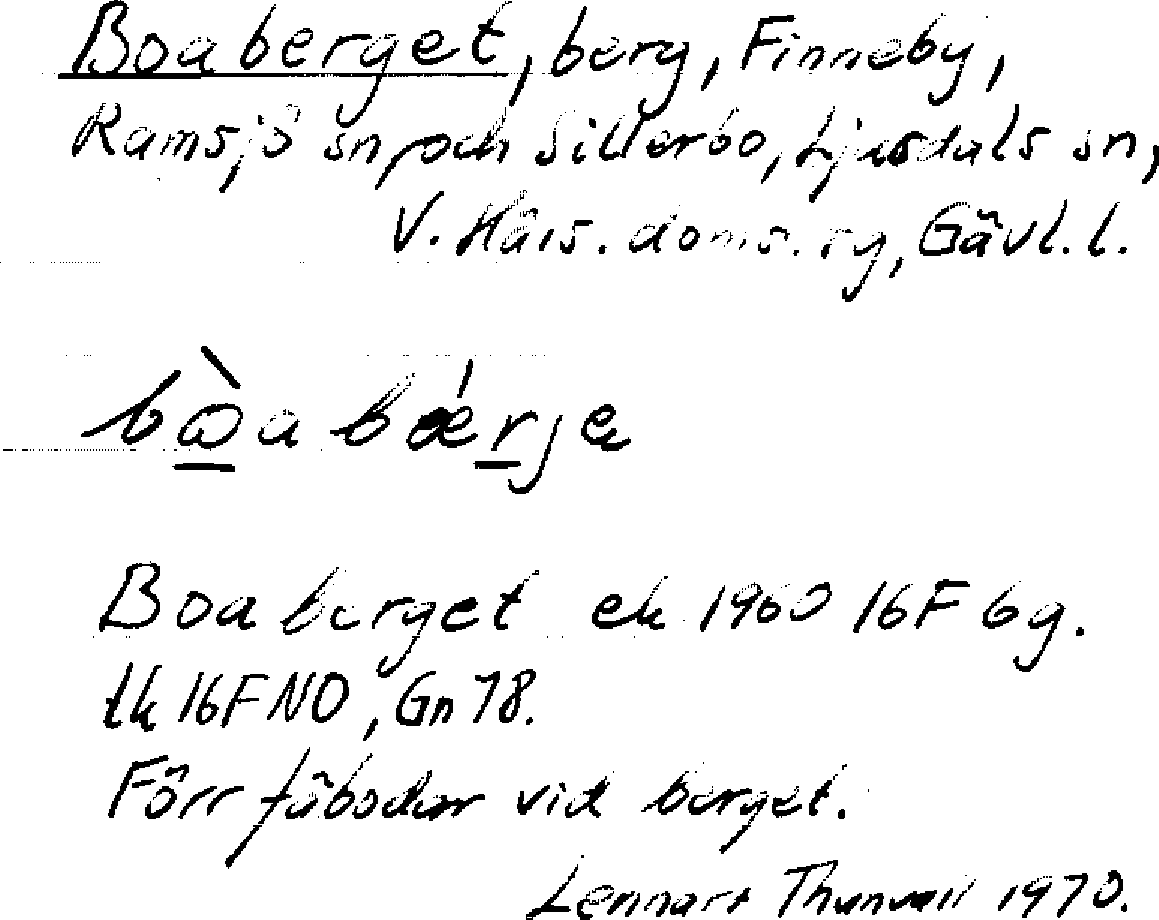 Boaberget, berg, Finneby,
Ramsjö sn, och Sillerbo, Ljusdals sn,
V. Häls. doms. rg, Gävl. l.
bò̱a bǽṟje
Boaberget ek 1960 16F 6g.
tk 16F NO, Gn 78.
Förr fäbodar vid berget.
Lennart Thunvall 1970.